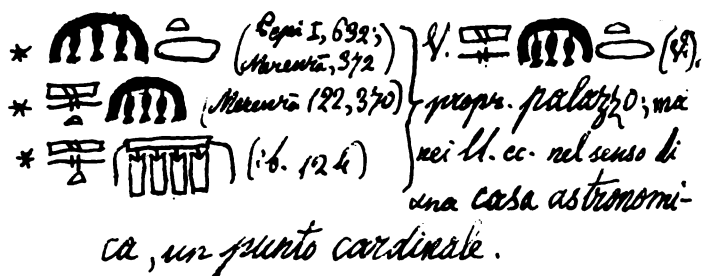 * (Pepi I, 692;
Merenrā, 372)
* (Merenrā 122, 370)
* (ib. 124)
V. (id.).
propr. palazzo; ma
nei ll. cc. nel senso di
una casa astronomi-
ca, un punto cardinale.